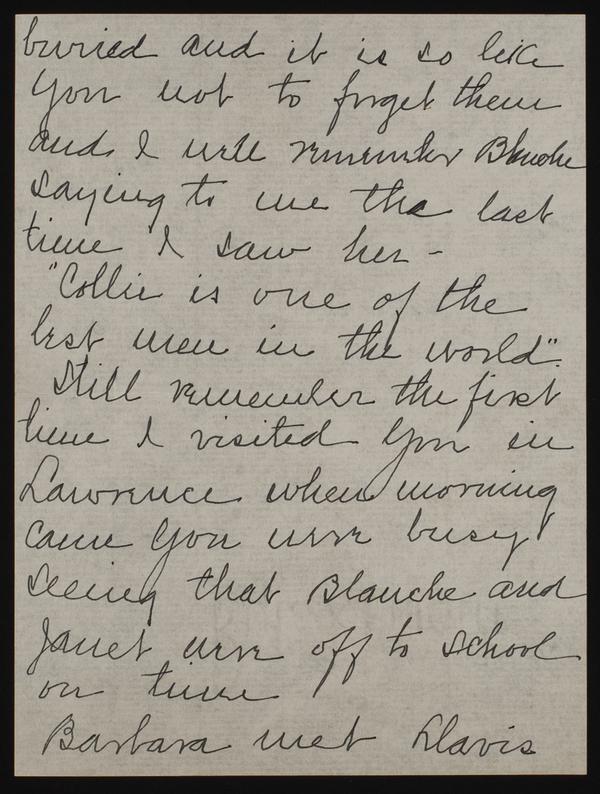 buried and it is so like
you not to forget them
and I will remember Blanche
saying to me the last
time I saw her -
"Collie is one of the
best men in the world".
Still remember the first
time I visited you in
Lawrence when morning
came you were busy
seeing that Blanche and
Janet were off to school
on time
Barbara met Davis